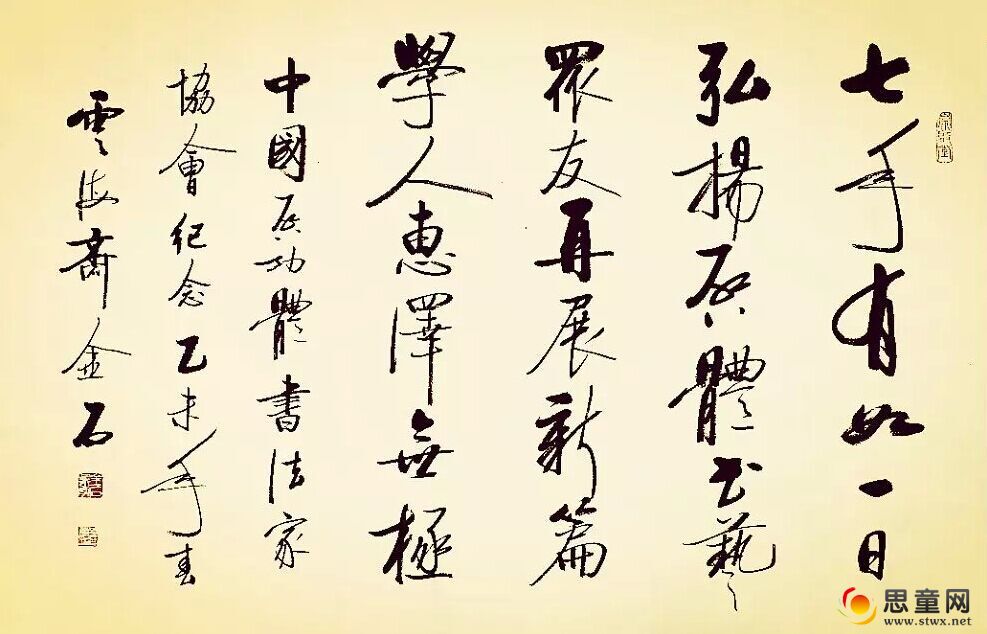 七年有如一日
弘揚启體书藝
眾友再展新篇
學人惠澤無極
中國启功體書法家
協會紀念乙未年春
雲海齋金石
思童网
www.stwx.net